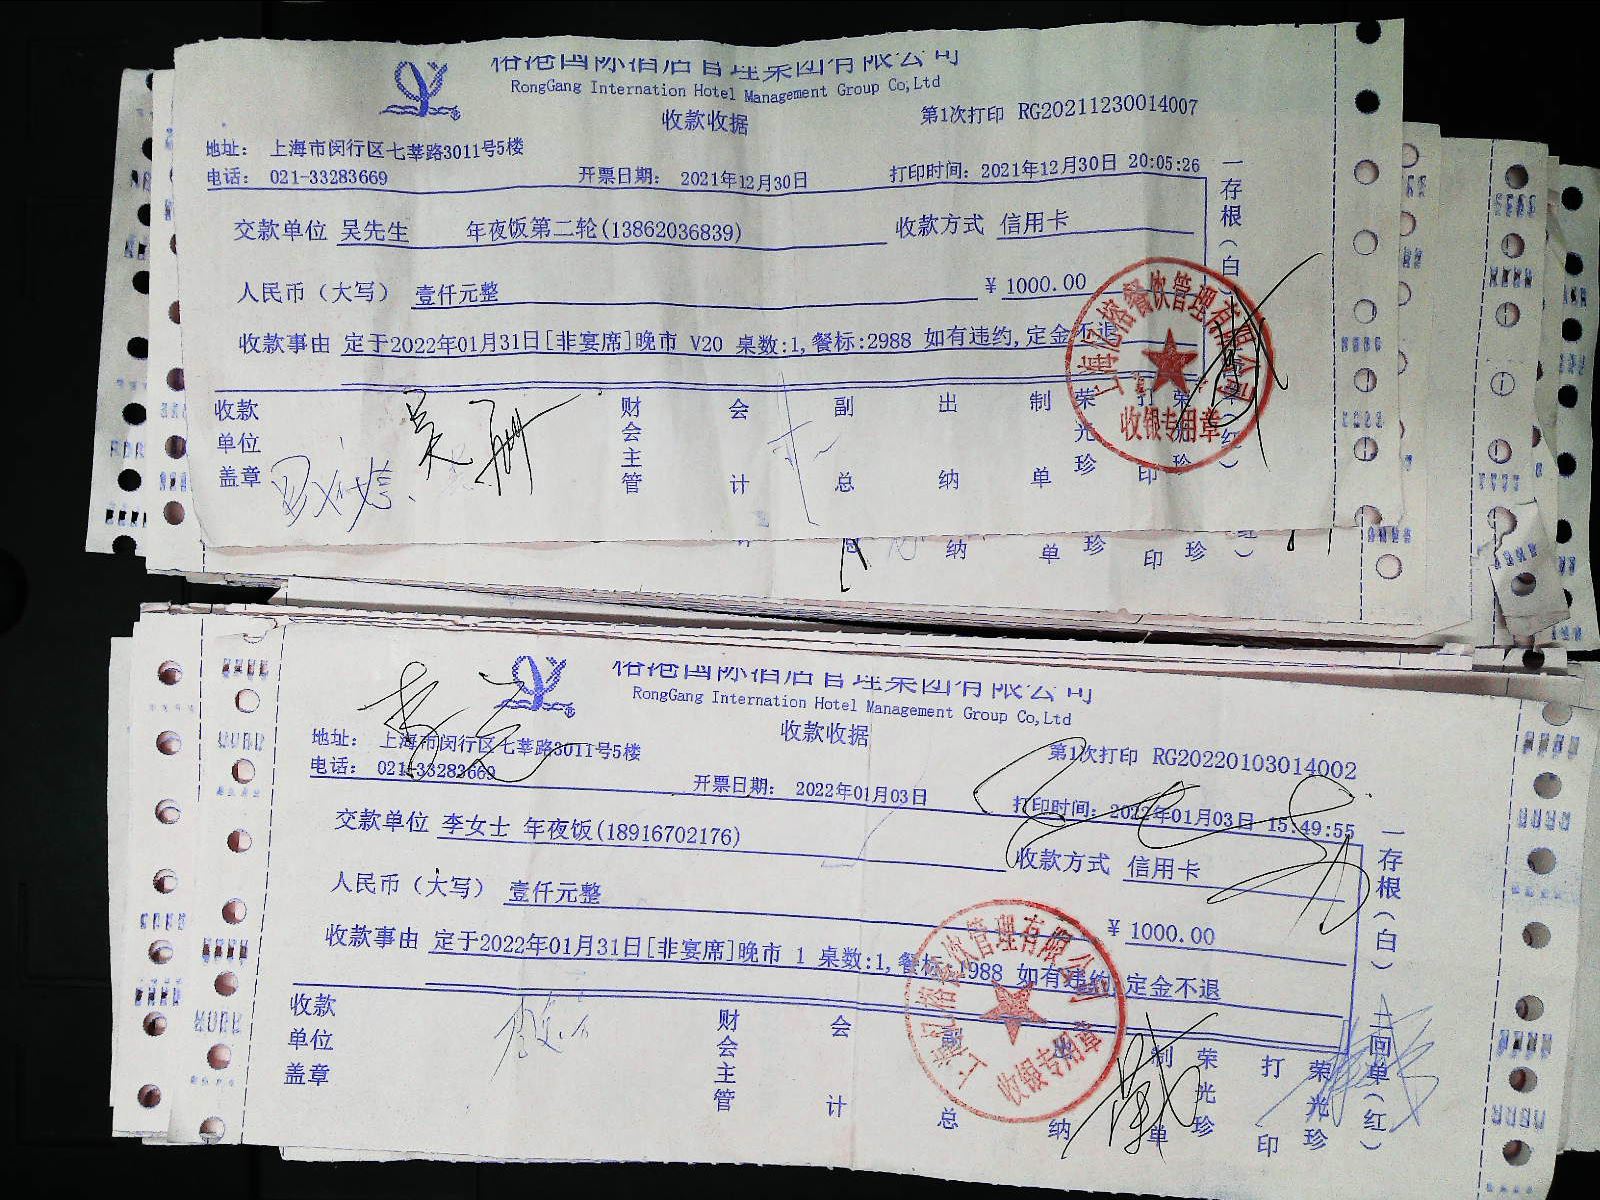 榕港国际酒店管理集团有限公司
RongGang Internation Hotel Management Group Co,Ltd
收款收据
第1次打印 RG20211230014007
地址： 上海市闵行区七莘路3011号5楼
电话： 021-33283669
开票日期： 2021年12月30日
打印时间：2021年12月30日 20:05:26
交款单位 吴先生 年夜饭第二轮(13862036839)
收款方式 信用卡
人民币（大写） 壹仟元整
¥ 1000.00
收款事由 定于2022年01月31日[非宴席]晚市 V20 桌数:1,餐标:2988 如有违约,定金不退
收款单位盖章
财会主管
会计
副总
出纳
制单
荣光珍
打印
荣光珍
一存根（白）
收银专用章
总 纳 单 珍 印 珍
榕港国际酒店管理集团有限公司
RongGang Internation Hotel Management Group Co,Ltd
收款收据
第1次打印 RG20220103014002
地址： 上海市闵行区七莘路3011号5楼
电话： 021-33283669
开票日期： 2022年01月03日
打印时间：2022年01月03日 15:49:55
交款单位 李女士 年夜饭(18916702176)
收款方式 信用卡
人民币（大写） 壹仟元整
¥ 1000.00
收款事由 定于2022年01月31日[非宴席]晚市 1 桌数:1,餐标:1988 如有违约,定金不退
收款单位盖章
财会主管
会计
副总
出纳
制单
荣光珍
打印
荣光珍
一存根（白）
二回单（红）
收银专用章